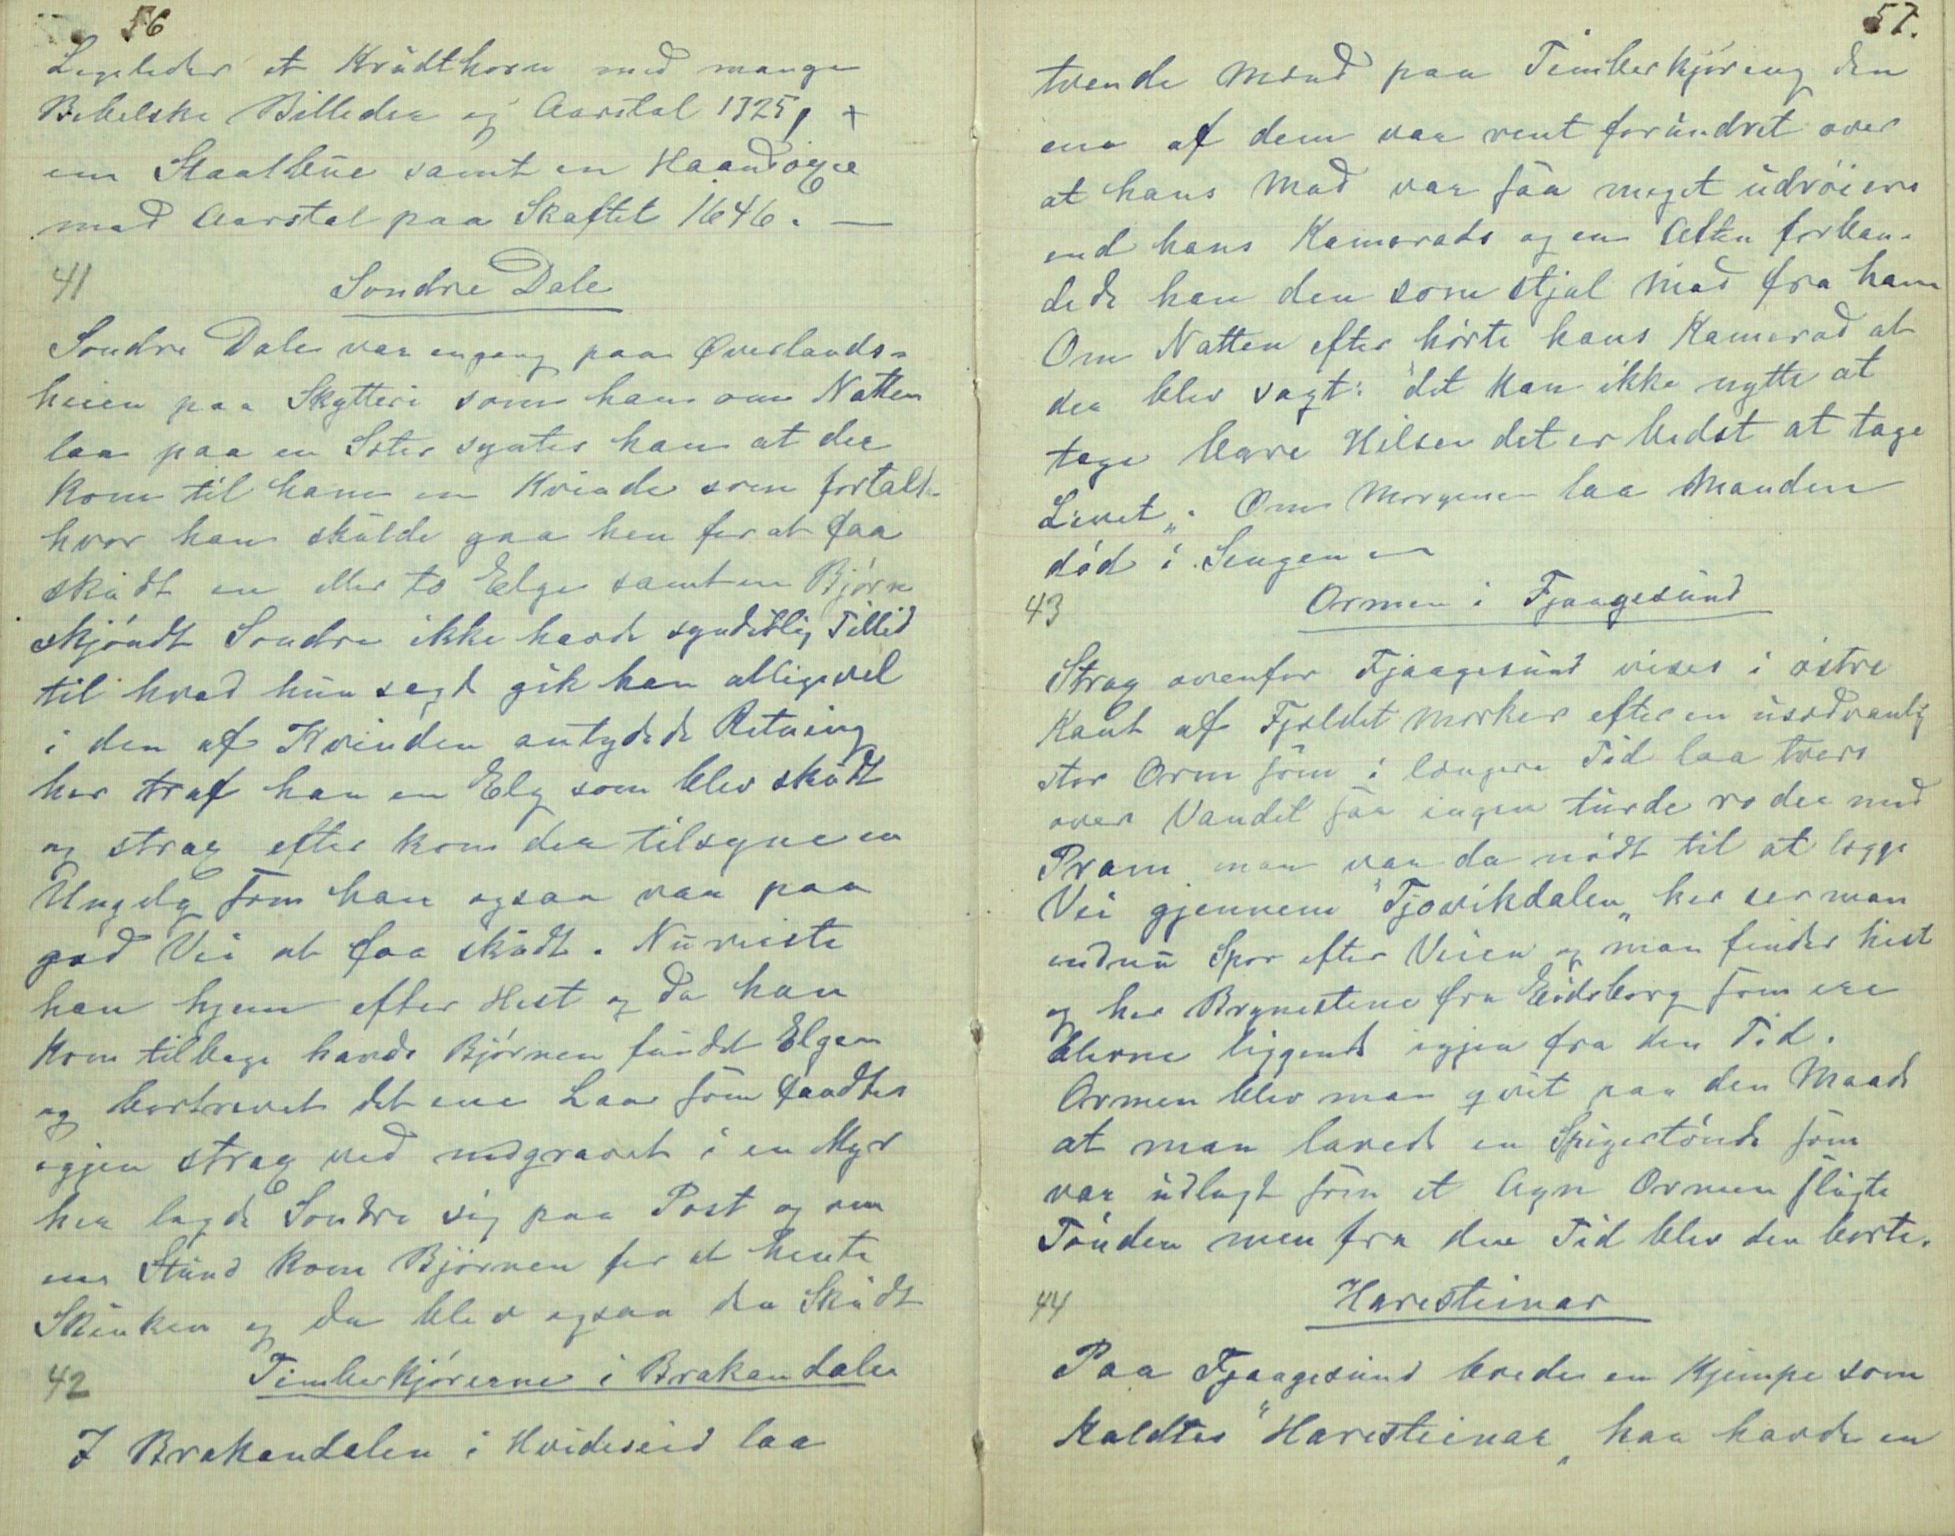 56
Legeledes et Krudthorn med mange
Bibelske Billeder og Aarstal 1725, +
en Staalbue samt en Haandøgse
med Aarstal paa Skaftet 1646. —
41 Sondre Dale
Sondre Dale var engang paa Øverlands-
heien paa Skytteri som han om Natten
laa paa en Seter syntes han at der
kom til ham en Kvinde som fortalte
hvor han skulde gaa hen for at faa
skudt en eller to Elge samt en Bjørn
skjøndt Sondre ikke havde synderlig Tillid
til hvad hun sagd gik han alligevel
i den af Kvinden antydede Retning
her traf han en Elg som blev skudt
og strax efter kom der tilsyne en
Ungelg som han ogsaa var paa
god Vei at faa skudt. Nu reiste
han hjem efter Hest og da han
kom tilbage havde Bjørnen fundet Elgen
og bortrevet det ene Laar som fandtes
igjen strax ved nedgravet i en Myr
her lagde Sondre sig paa Post og om
en Stund kom Bjørnen for at hente
Skinken og da blev ogsaa den Skudt
42 Timberkjørerne i Brakandalen
I Brakandalen i Hvideseid laa
57.
tvende Mænd paa Timberkjøring den
ene af dem var rent forundret over
at hans Mad var saa meget udrøiere
end hans Kamerads og en Aften forban-
dede han den som stjal Mad fra ham
Om Natten efter hørte hans Kamerad at
der blev sagt: "det kan ikke nytte at
tage bare Hilsen det er bedst at tage
Livet". Om Morgenen laa Manden
død i Sengen
43 Ormen i Fjaagesund
Strax ovenfor Fjaagesund vises i østre
Kant af Fjeldet Merker efter en usædvanlig
stor Orm som i længere Tid laa tvers
over Vandet saa ingen turde ro der med
Pram man var da nødt til at legge
Vei gjennem "Tjovikdalen" her ser man
endnu Spor efter Veien og man finder hist
og her Brynestene fra Eidsborg som ere
blevne liggende igjen fra den Tid.
Ormen blev man qvit paa den Maade
at man lavede en Spigertønde som
var udlagt som et Agn Ormen slugte
Tønden men fra den Tid blev den borte.
44 Haresteinar
Paa Fjaagesund boede en Kjempe som
kaldtes "Haresteinar" han havde en